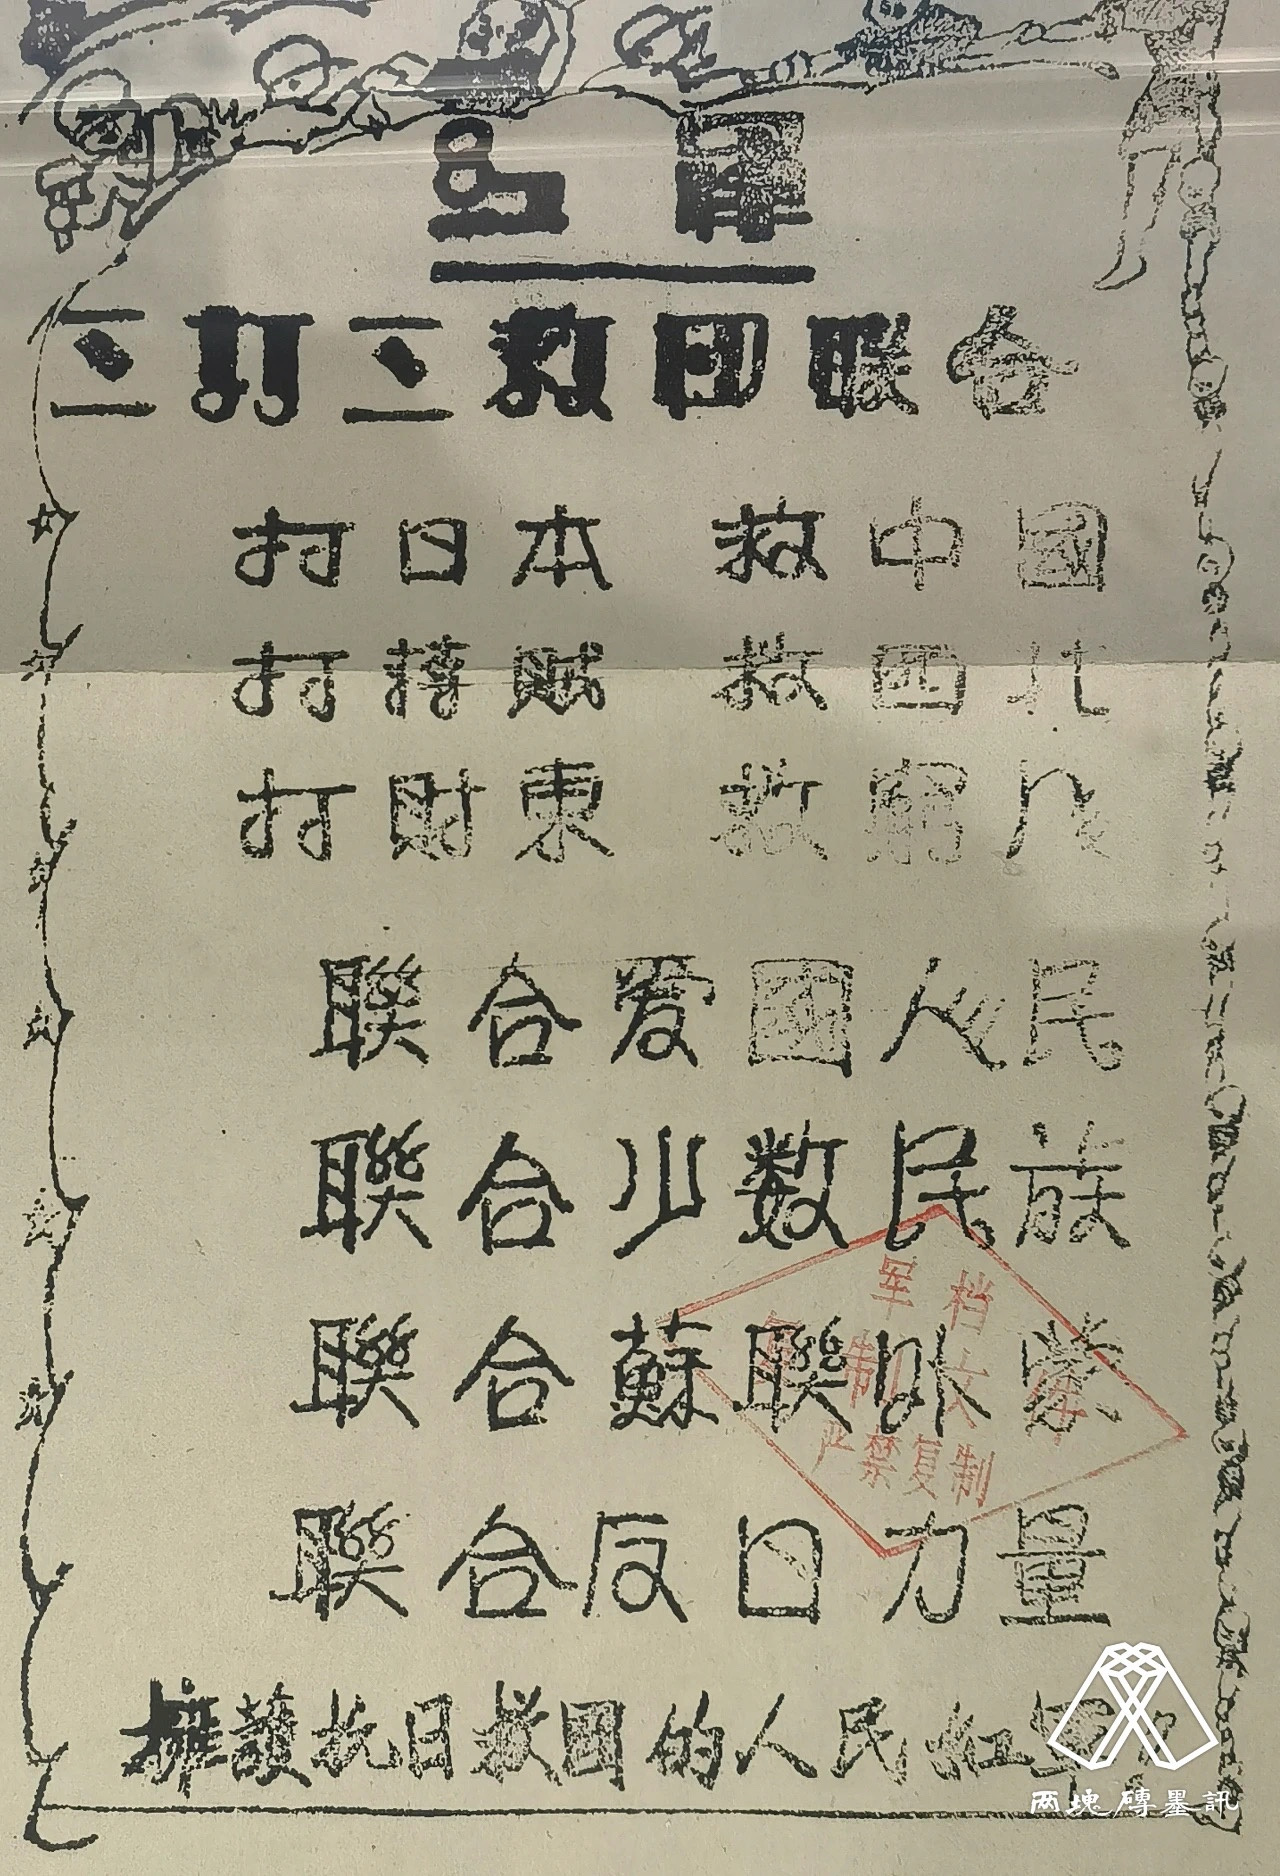 三打三救四联合
打日本 救中國
打蔣賊 救西北
打財東 救窮人
聯合爱國人民
聯合少数民族
聯合蘇聯外蒙
聯合反日力量
擁護抗日救國的人民紅軍
军档
严禁复制
两塊磚墨訊